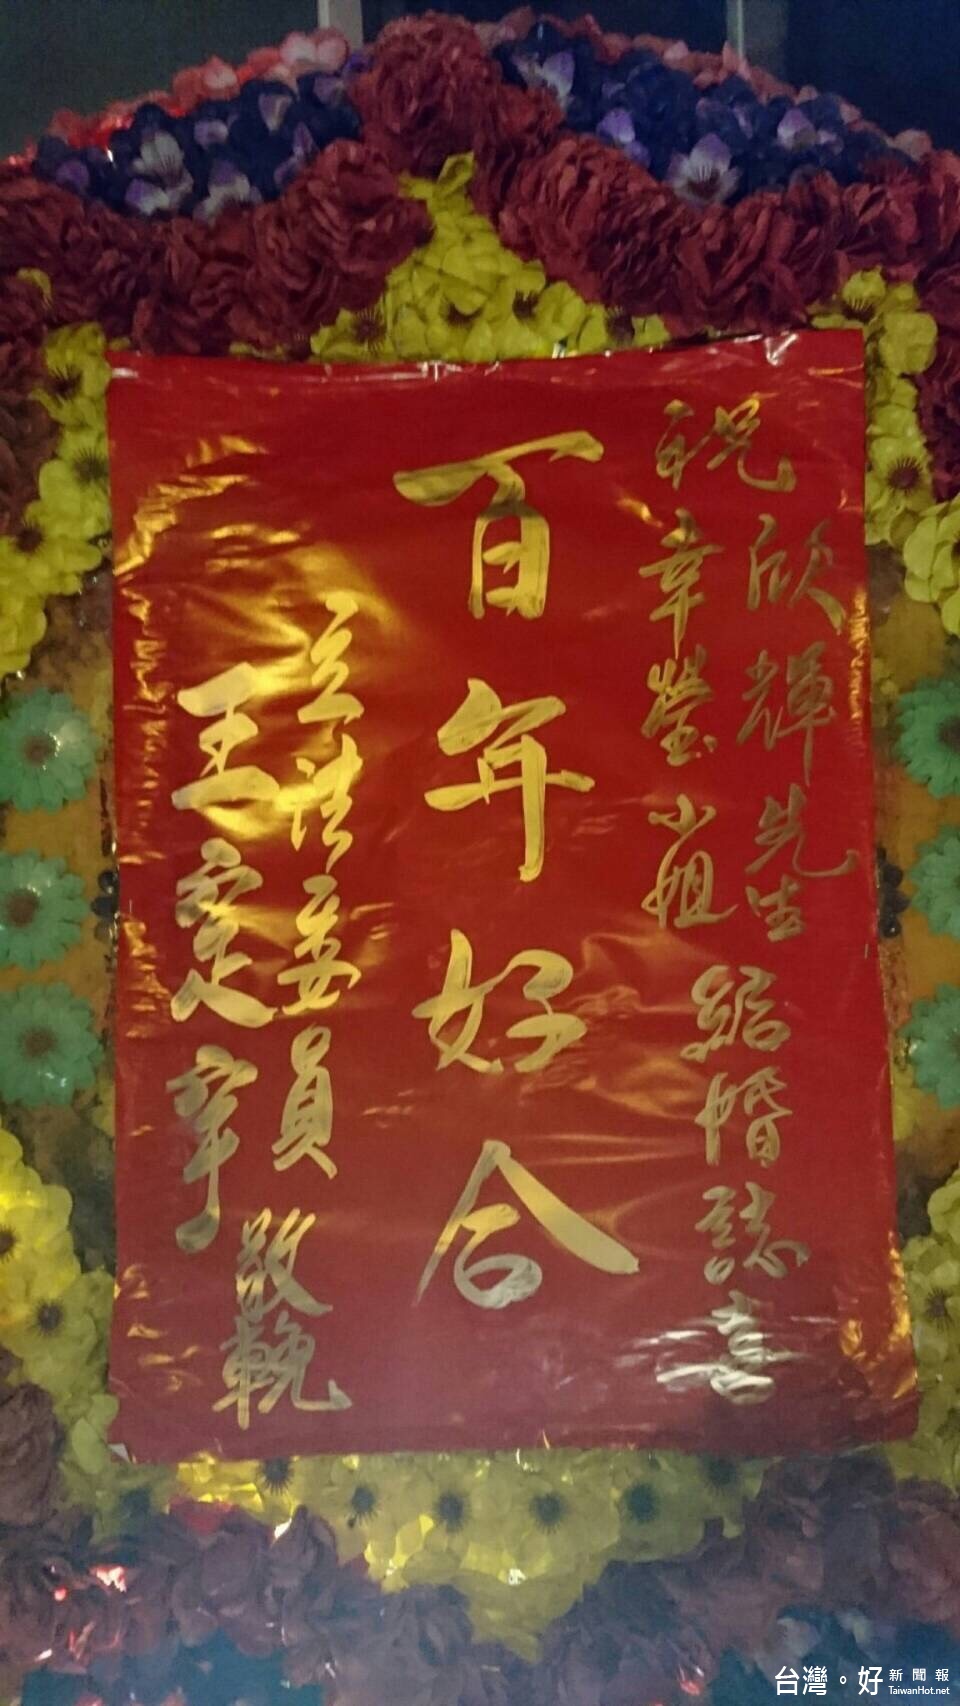 祝
欣輝先生
幸瑩小姐
結婚誌喜
百年好合
立法委員
王定宇
敬輓
台灣。好 新聞報
TaiwanHot.net